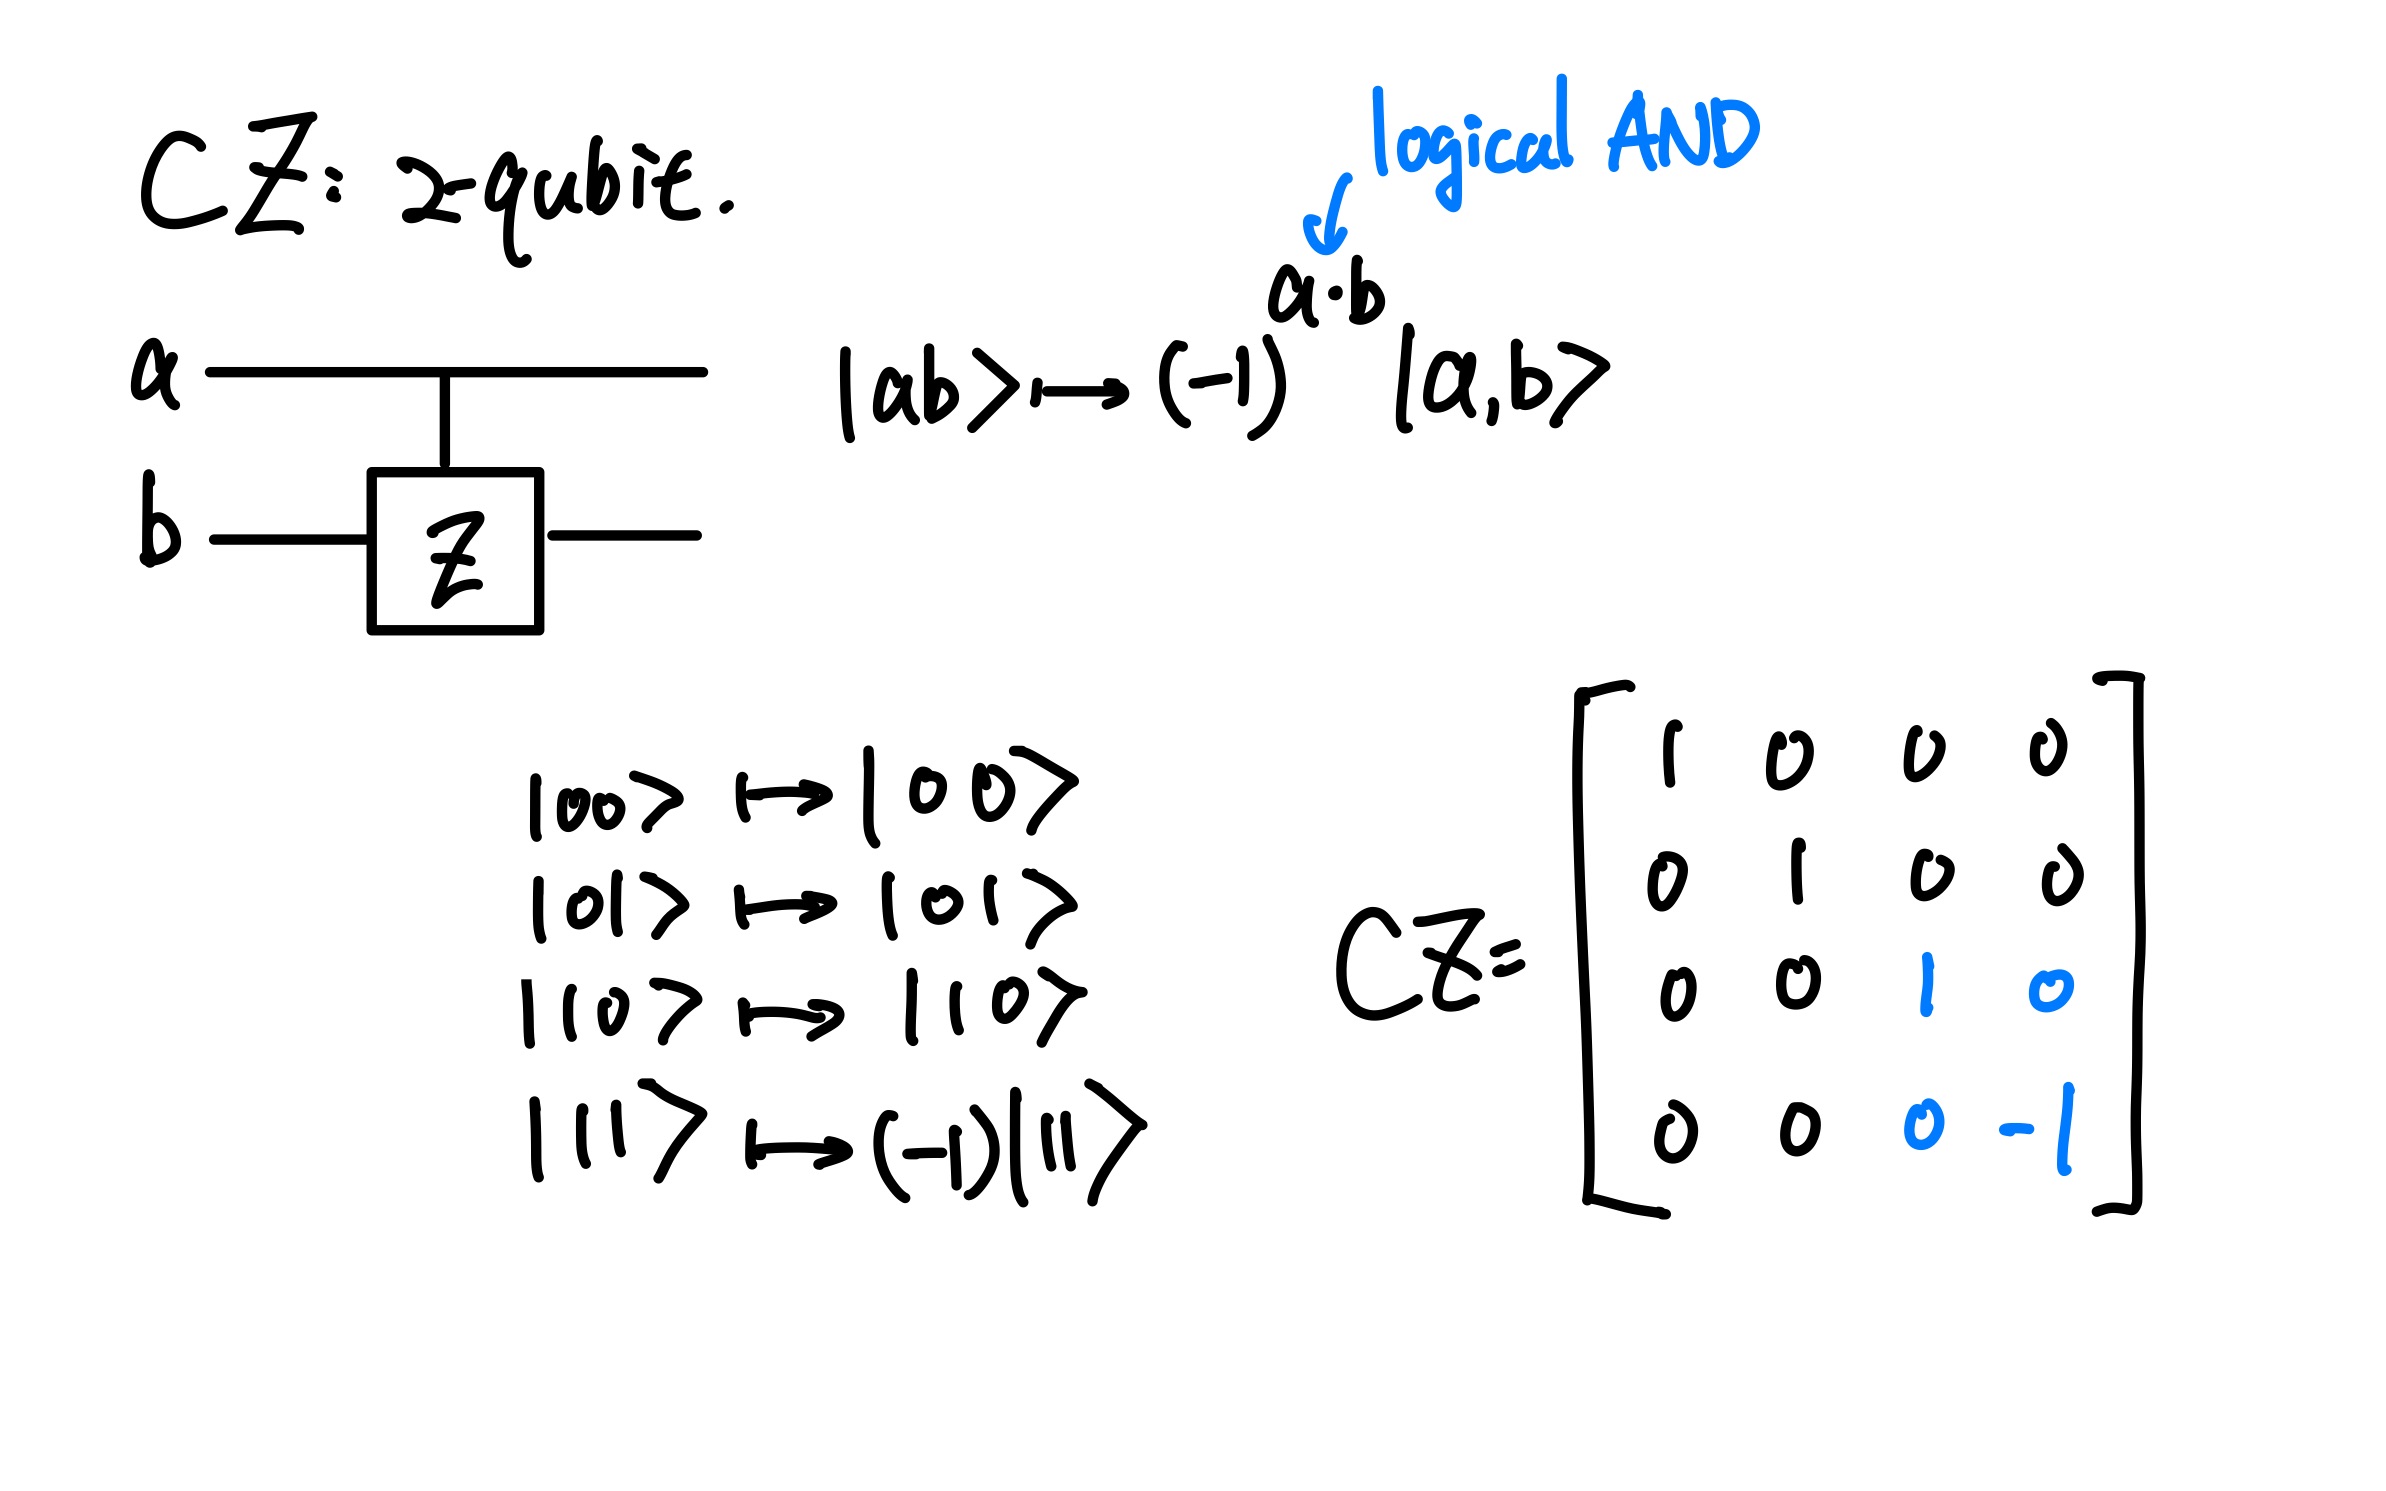 CZ: 2-qubit.
logical AND
a
b
Z
|ab> ↦ (-1)^{a·b} |a,b>
|00> ↦ |00>
|01> ↦ |01>
|10> ↦ |10>
|11> ↦ (-1)|11>
CZ =
1 0 0 0
0 1 0 0
0 0 1 0
0 0 0 -1